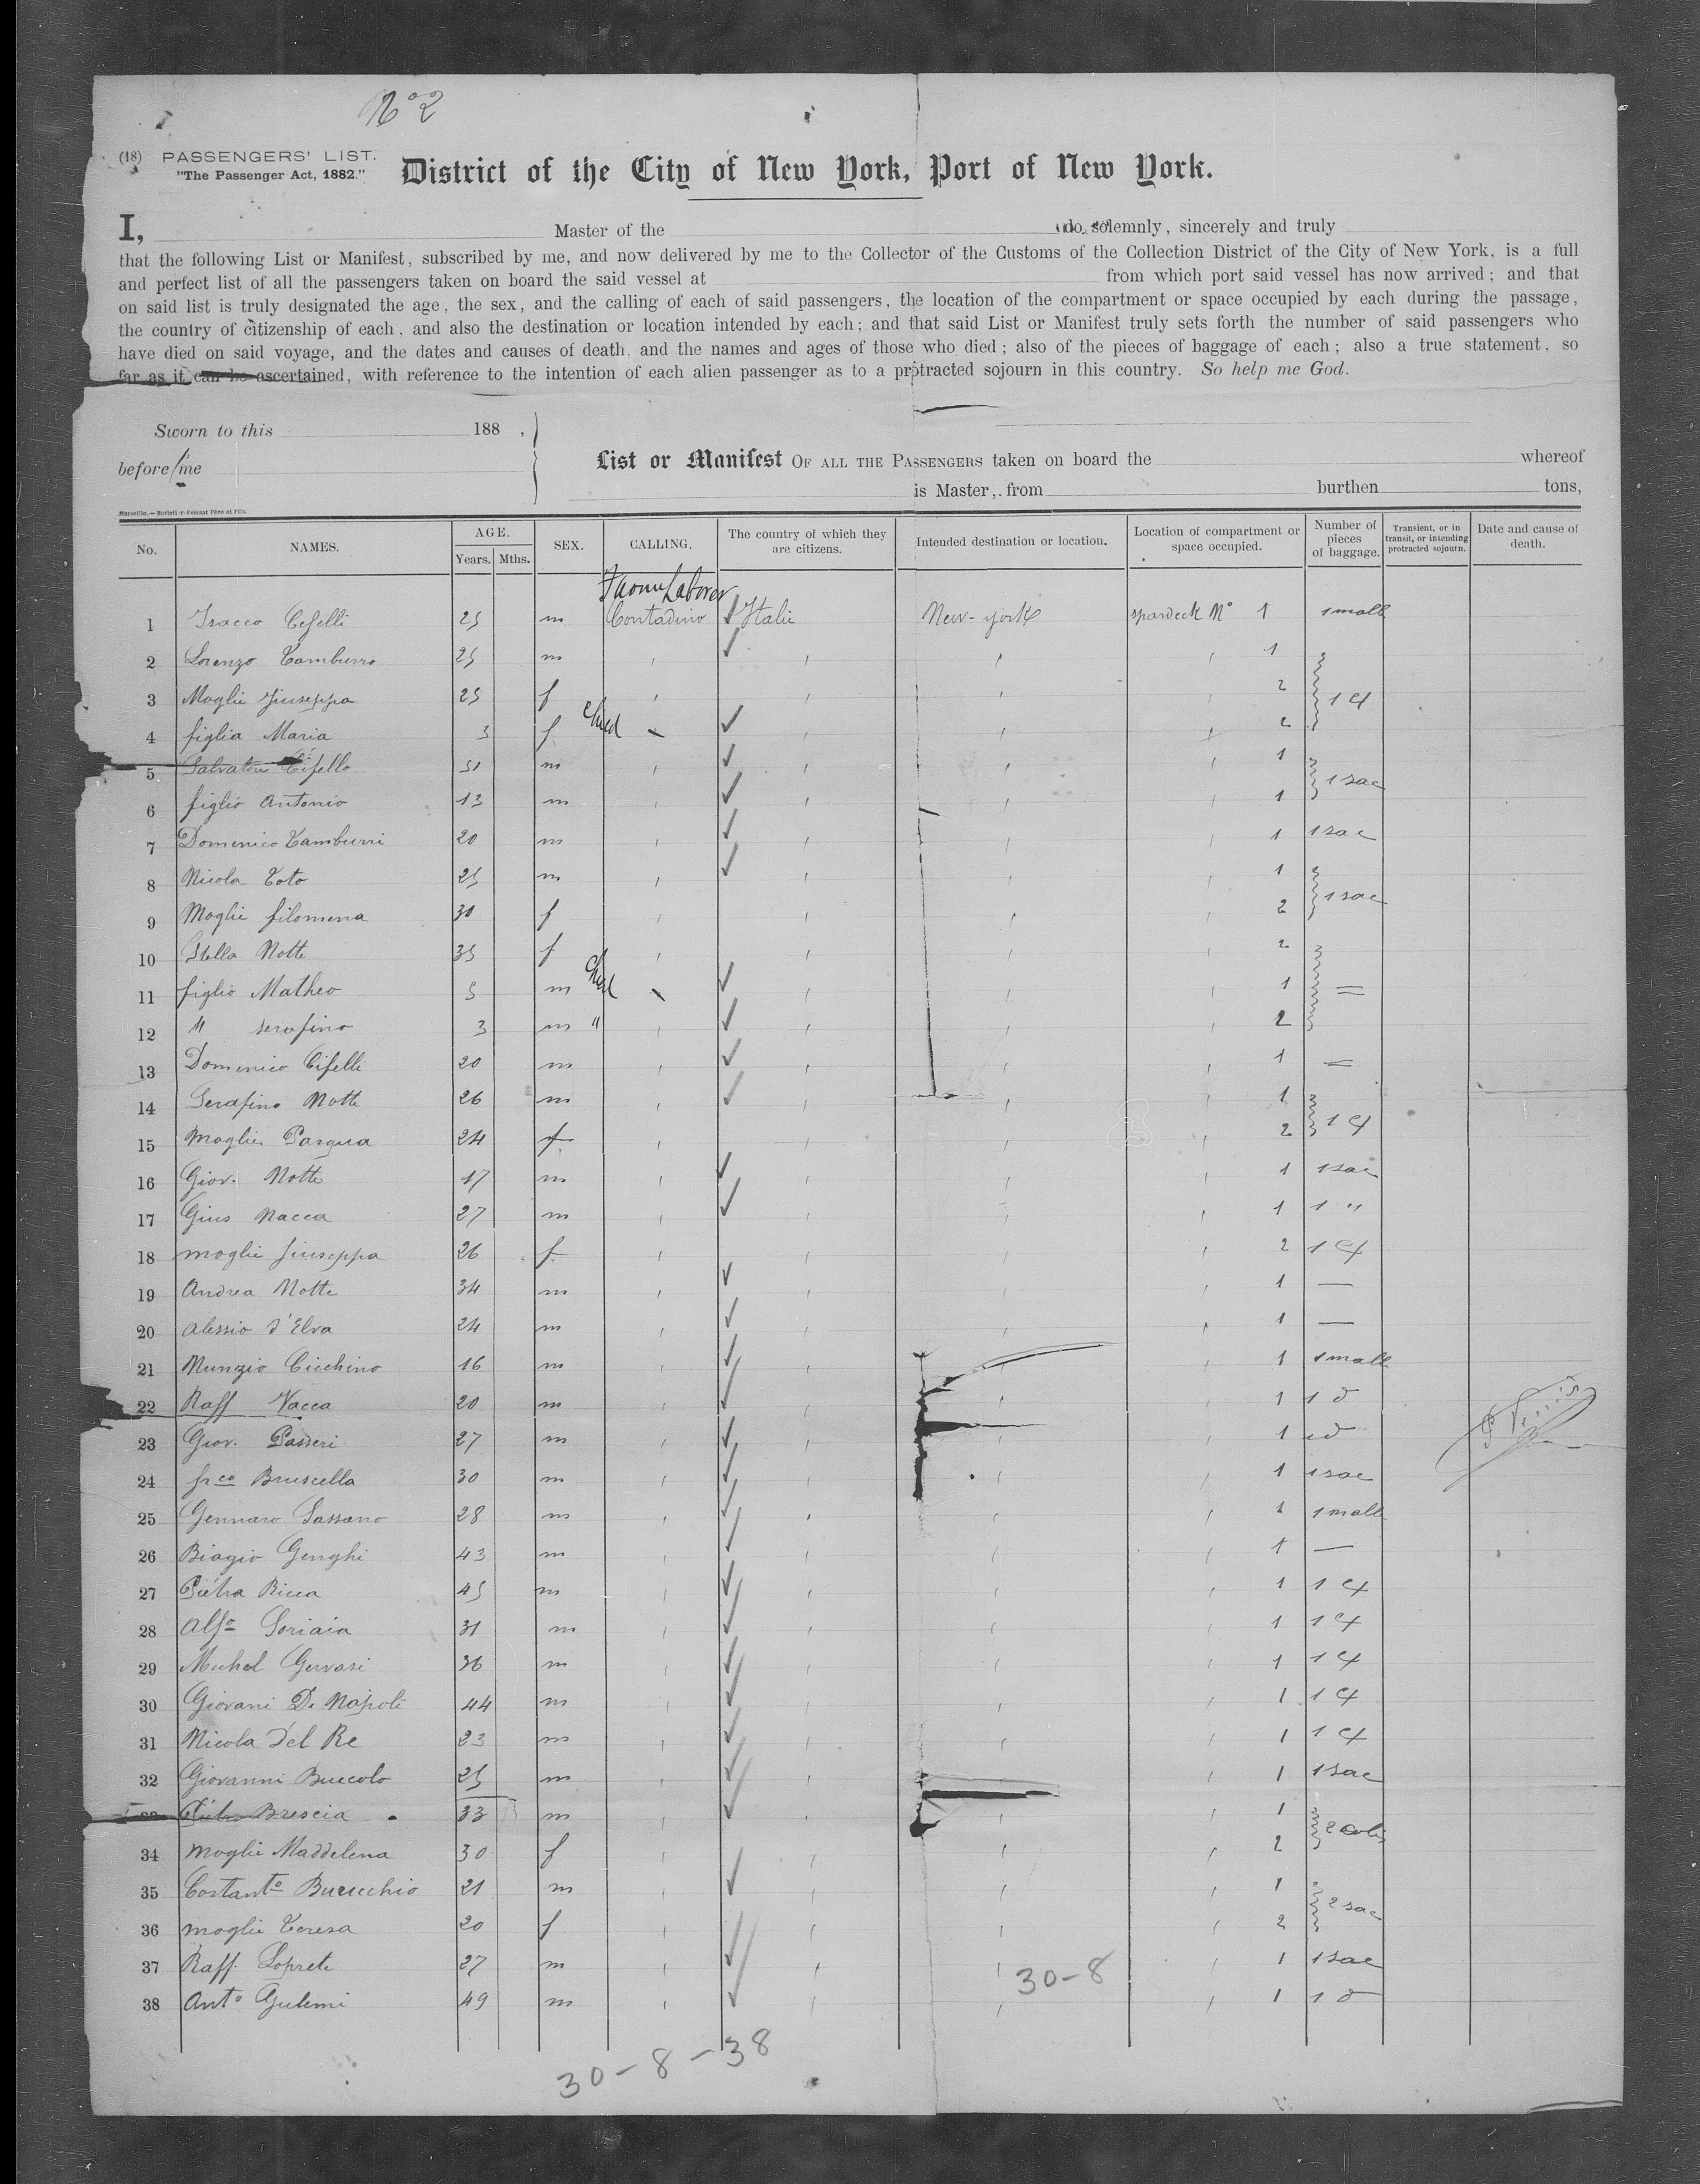 No 2
(18) PASSENGERS' LIST.
"The Passenger Act, 1882."
District of the City of New York, Port of New York.
I, Master of the do, solemnly, sincerely and truly
that the following List or Manifest, subscribed by me, and now delivered by me to the Collector of the Customs of the Collection District of the City of New York, is a full
and perfect list of all the passengers taken on board the said vessel at from which port said vessel has now arrived; and that
on said list is truly designated the age, the sex, and the calling of each of said passengers, the location of the compartment or space occupied by each during the passage,
the country of citizenship of each, and also the destination or location intended by each; and that said List or Manifest truly sets forth the number of said passengers who
have died on said voyage, and the dates and causes of death, and the names and ages of those who died; also of the pieces of baggage of each; also a true statement, so
far as it can be ascertained, with reference to the intention of each alien passenger as to a protracted sojourn in this country. So help me God.
Sworn to this 188 ,
before me
List or Manifest OF ALL THE PASSENGERS taken on board the whereof
is Master, from burthen tons,
No. NAMES. AGE. Years. Mths. SEX. CALLING. The country of which they are citizens. Intended destination or location. Location of compartment or space occupied. Number of pieces of baggage. Transient, or in transit, or intending protracted sojourn. Date and cause of death.
Laborer
1 Cifelli 25 m Contadino Italie New-york spardeck No 1 1 malle
2 Lorenzo Tamburro 25 m 1
3 Moglie Giuseppa 25 f 2 1 cf
4 figlia Maria 3 f child 2
5 Salvatore Cifello 51 m 1
6 figlio Antonio 13 m 1 1 sac
7 Domenico Tamburri 20 m 1 1 sac
8 Nicola Toto 25 m 1
9 Moglie filomena 30 f 2 1 sac
10 Stella Notte 35 f 2
11 figlio Matheo 5 m child 1 =
12 " serafino 3 m " 2
13 Domenico Cifelli 20 m 1 =
14 Serafino Notte 26 m 1
15 moglie Pasqua 24 f 2 1 cf
16 Giov. Notte 17 m 1 1 sac
17 Gius Nacca 27 m 1 1 "
18 moglie Giuseppa 26 f 2 1 cf
19 Andrea Notte 34 m 1 —
20 Alessio d'Elva 24 m 1 —
21 Nunzio Cicchino 16 m 1 1 malle
22 Raff Vacca 20 m 1 1 d
23 Giov. Passeri 27 m 1 id
24 frco Bruscella 30 m 1 1 sac
25 Gennaro Sassano 28 m 1 1 malle
26 Biagio Genghi 43 m 1 —
27 Pietra Ricca 45 m 1 1 cf
28 Alfo Soriaia 31 m 1 1 cf
29 Michel Gervasi 36 m 1 1 cf
30 Giovani Di Napoli 44 m 1 1 cf
31 Nicola Del Re 23 m 1 1 cf
32 Giovanni Buccolo 25 m 1 1 sac
33 Pietro Brescia 33 m 1
34 moglie Maddelena 30 f 2 2 colis
35 Costanto Buricchio 21 m 1
36 moglie Teresa 20 f 2 2 sac
37 Raff. Loprete 27 m 1 1 sac
38 Anto Gulemi 49 m 1 1 d
30-8
30-8-38